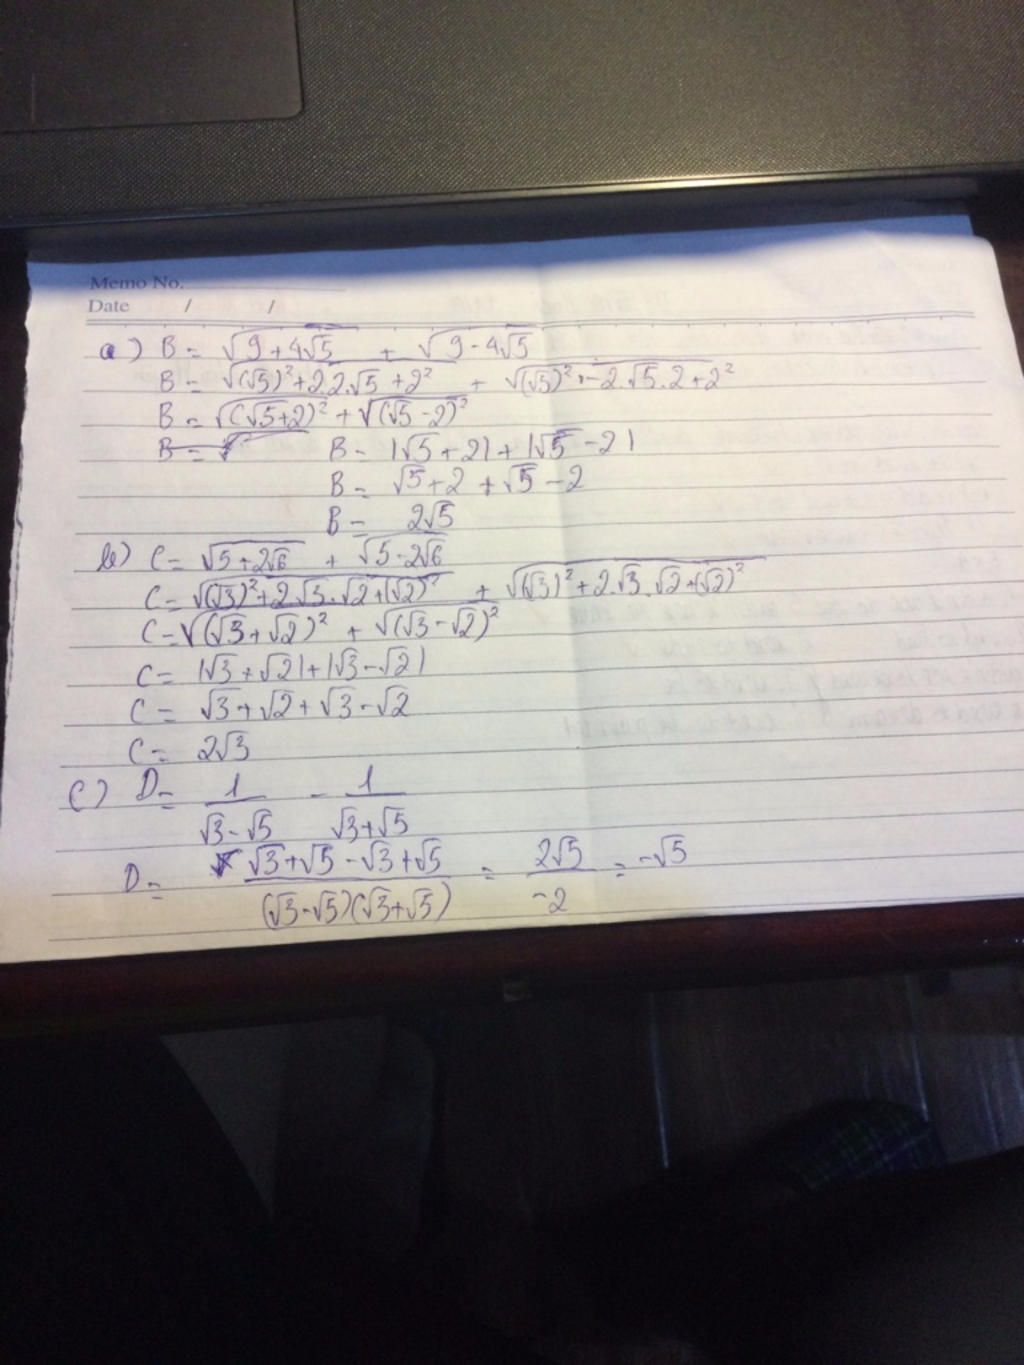 Memo No.
Date / /
a) B = √(9+4√5) + √(9-4√5)
B = √((√5)²+2.2.√5+2²) + √((√5)²-2.√5.2+2²)
B = √((√5+2)²) + √((√5-2)²)
B = √ B = |√5+2|+|√5-2|
B = √5+2+√5-2
B = 2√5
b) C = √(5+2√6) + √(5-2√6)
C = √((√3)²+2√3.√2+(√2)²) + √((√3)²+2.√3.√2+(√2)²)
C = √((√3+√2)²) + √((√3-√2)²)
C = |√3+√2|+|√3-√2|
C = √3+√2+√3-√2
C = 2√3
c) D = 1/(√3-√5) - 1/(√3+√5)
D = (√3+√5-√3+√5)/((√3-√5)(√3+√5)) = 2√5/-2 = -√5